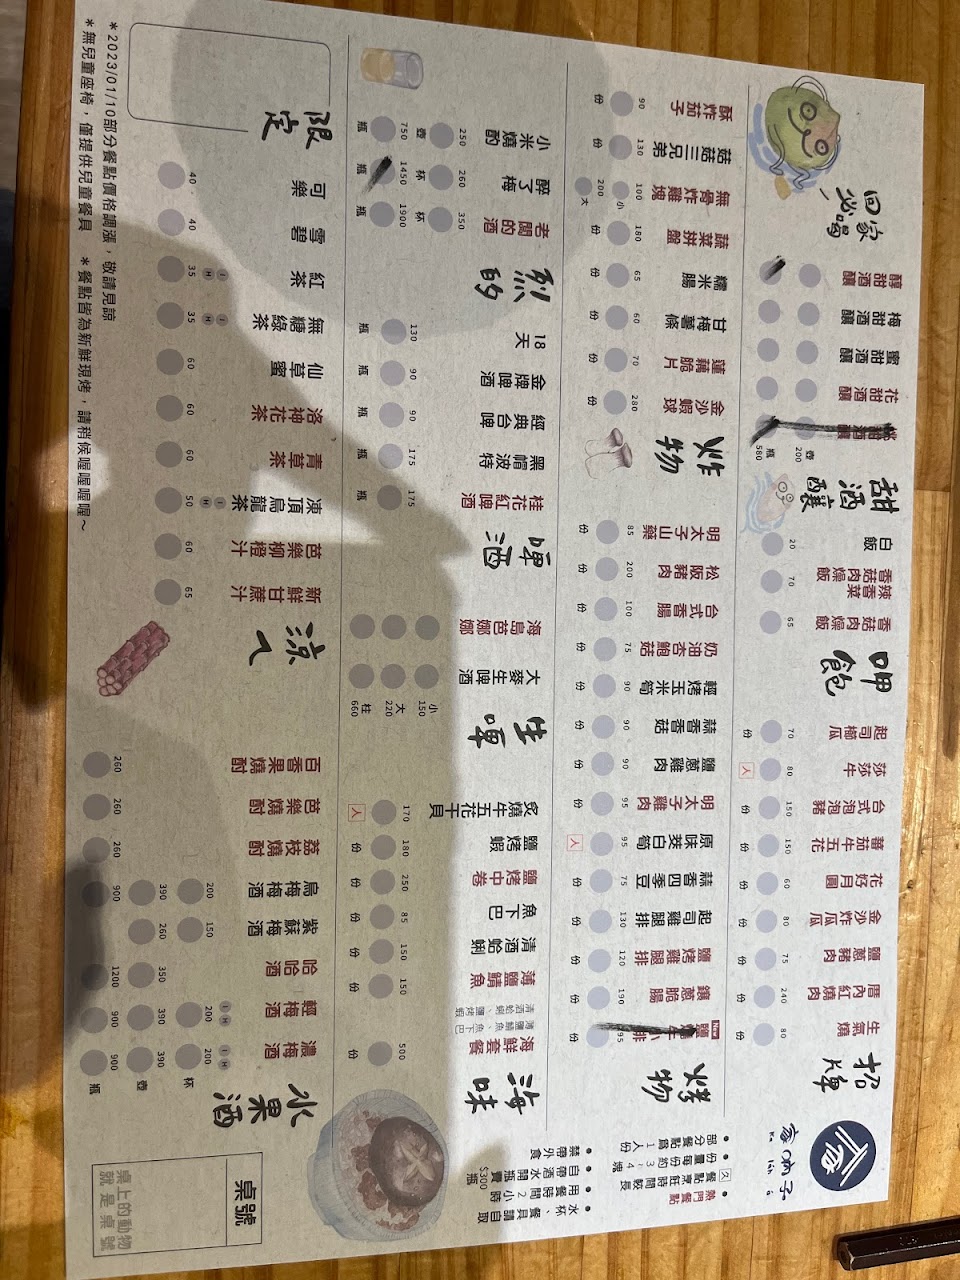 家咧子
Ka leh á
熱門餐點
久 餐點烹飪時間較長
部分餐點為1人份
份量每份約3-4塊
水杯、餐具請自取
用餐時間2小時
自帶酒水開瓶費$300瓶
禁帶外食
桌號
桌上的動物
就是桌號
招牌
生氣燒 80 份
厝內紅燒肉 240 份
鹽蔥豬肉 75 份
金沙炸瓜瓜 80 份
花好月圓 60 份
蕃茄牛五花 150 份
台式泡泡豬 150 份
莎莎牛 80 人
起司櫛瓜 70 份
呷飽
香菇肉燥飯 65
辣香菜香菇肉燥飯 70
白飯 20
甜酒釀
壺 200
瓶 580
花甜酒釀
蜜甜酒釀
梅甜酒釀
醇甜酒釀
回家必喝
烤物
New 195 份
鑲蔥脆腸 190 份
鹽烤雞腿排 120 份
起司雞腿排 130 份
蒜香四季豆 75 份
原味茭白筍 95 人
明太子雞肉 95 份
鹽蔥雞肉 90 份
蒜香香菇 90 份
輕烤玉米筍 90 份
奶油杏鮑菇 75 份
台式香腸 100 份
松阪豬肉 200 份
明太子山藥 85 份
炸物
金沙蝦球 280 份
蓮藕脆片 70 份
甘梅薯條 60 份
糯米腸 65 份
蔬菜拼盤 180 份
無骨炸雞塊 100 小 200 大
菇菇三兄弟 130 份
酥炸茄子 90 份
海味
海鮮套餐 500 份
薄鹽鯖魚、魚下巴
清酒蛤蜊、鹽烤蝦
薄鹽鯖魚 150 份
清酒蛤蜊 150 份
魚下巴 85 份
鹽烤中卷 250 份
鹽烤蝦 180 份
炙燒牛五花干貝 170 人
生啤
小 150
大 220
柱 660
大麥生啤酒
海島芭娜娜
啤酒
桂花紅啤酒 175 瓶
黑帽波特 175 瓶
經典台啤 90 瓶
金牌啤酒 90 瓶
18天 130 瓶
烈的
老闆的酒 350 杯 1900 瓶
醉了梅 260 杯 1450 瓶
小米燒酌 250 壺 750 瓶
水果酒
杯 壺 瓶
濃梅酒 I H 200 390 900
輕梅酒 I H 200 390 900
哈哈酒 350 1200
紫蘇梅酒 150 260
烏梅梅酒 200 390 900
荔枝燒酎 260
芭樂燒酎 260
百香果燒酎 260
涼ㄟ
新鮮甘蔗汁 65
芭樂柳橙汁 60
凍頂烏龍茶 I H 50
青草茶 60
洛神花茶 60
仙草蜜 60
無糖綠茶 I H 35
紅茶 I H 35
雪碧 40
可樂 40
限定
*2023/01/10部分餐點價格調漲，敬請見諒
*無兒童座椅，僅提供兒童餐具 *餐點皆為新鮮現烤，請稍候喔喔喔喔~